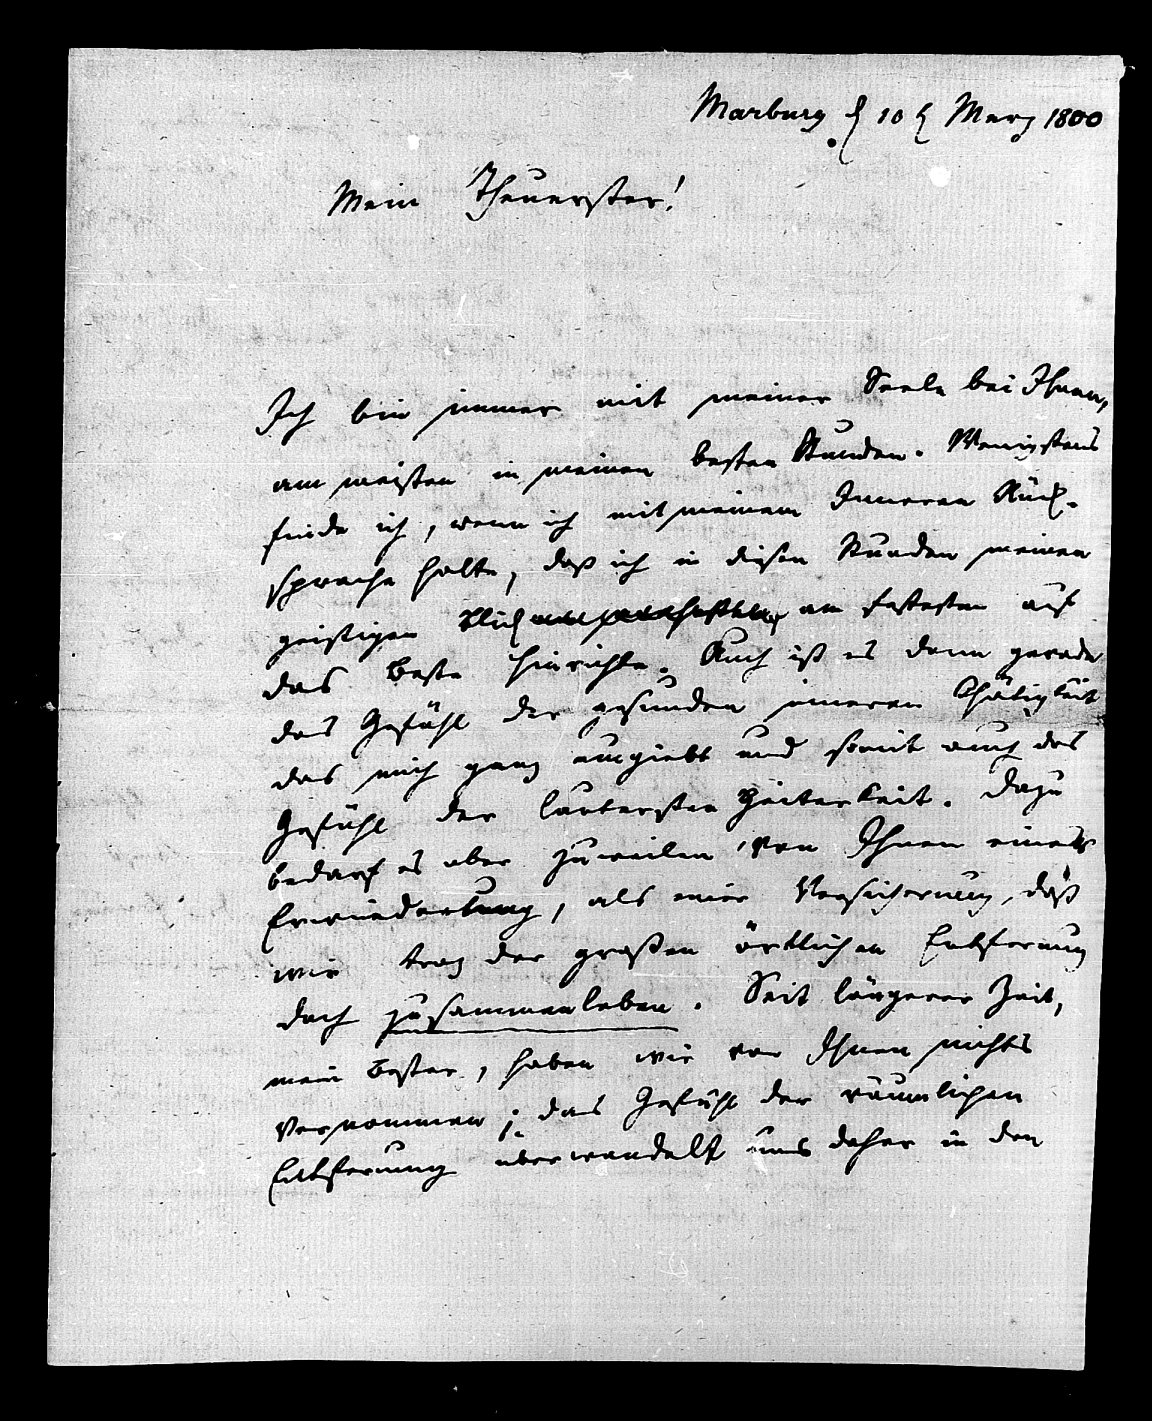 Marburg d 10 t Merz 1800
Mein Theuerster!
Ich bin immer mit meiner Seele bei Ihnen,
am meisten in meinen besten Stunden. Wenigstens
finde ich, wenn ich mit meinem Inneren Rück-
sprache halte, daß ich in diesen Stunden meinen
geistigen Blick am festesten auf
das Beste hinrichte. Auch ist es dann gerade
das Gefühl der gesunden inneren Thätigkeit
das mich ganz umgiebt und somit auch das
Gefühl der lautersten Heiterkeit. Dazu
bedarf es aber zuweilen von Ihnen einer
Erwiederung, als einer Versicherung, daß
wir troz der großen örtlichen Entfernung
doch zusammenleben. Seit längerer Zeit,
mein Bester, haben wir von Ihnen nichts
vernommen; das Gefühl der räumlichen
Entfernung überwandelt uns daher in den